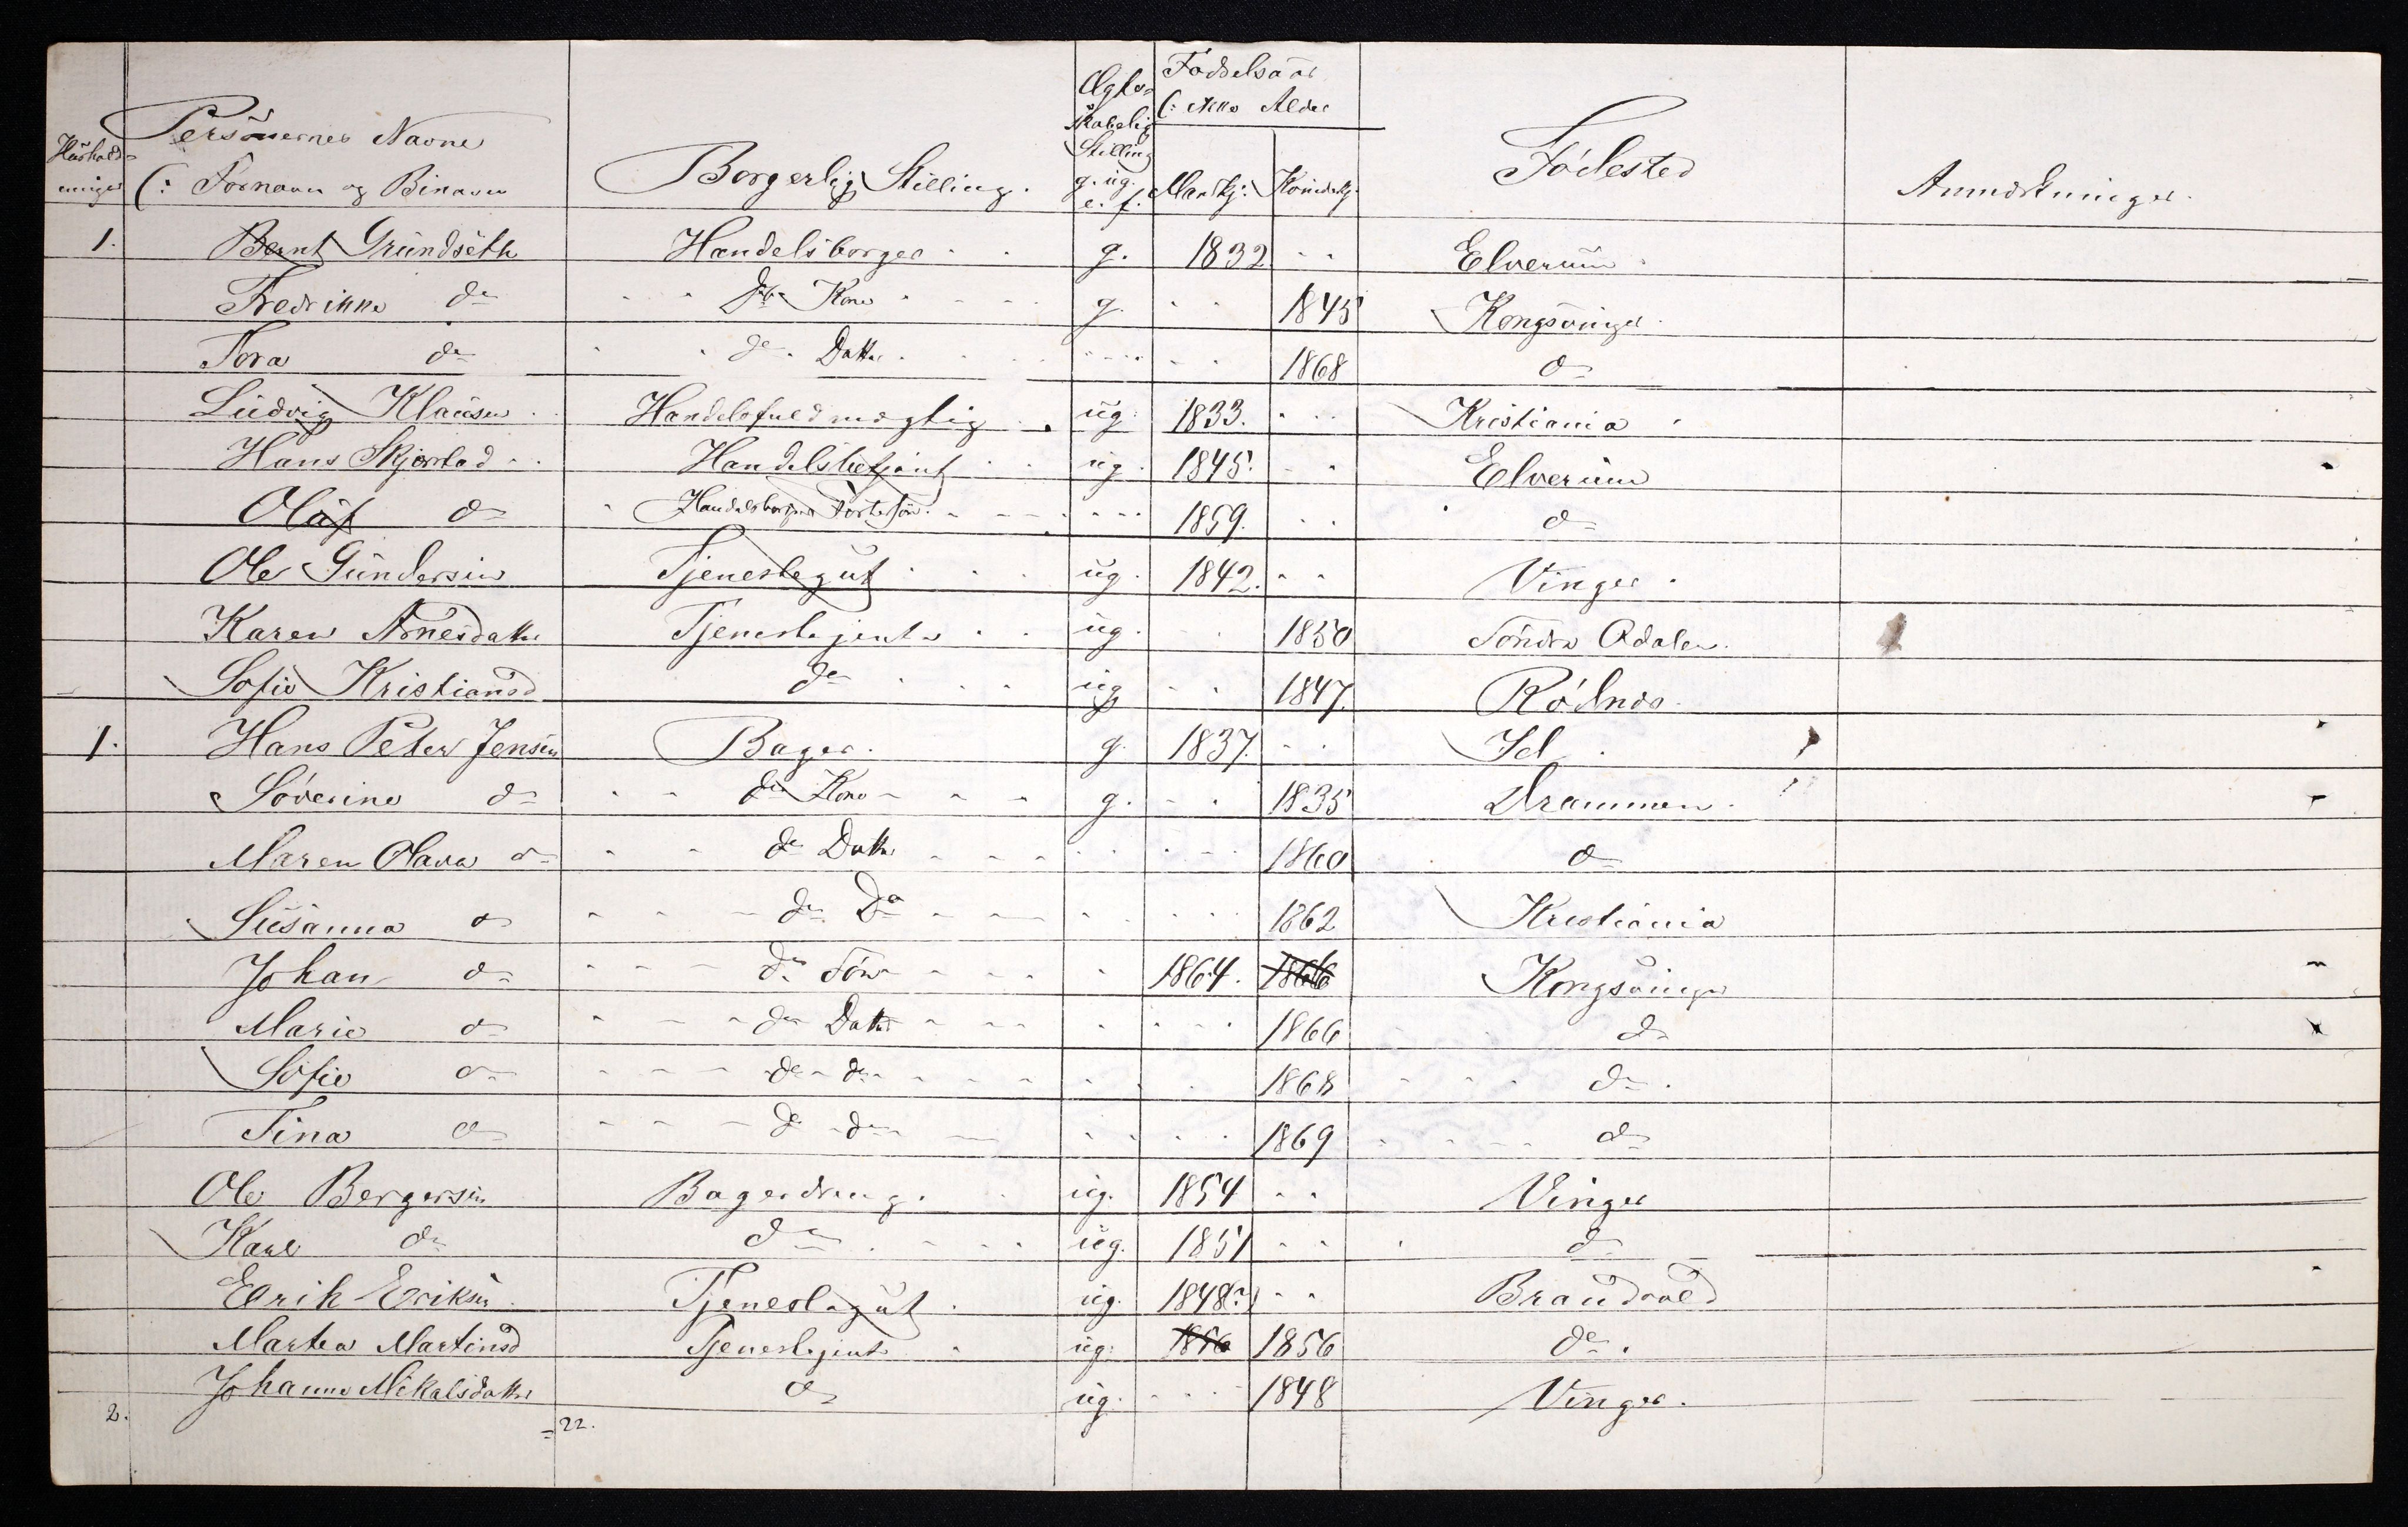 Ægte- Fødselsaar
skabelig (: ikke Alder
Hushold- Personernes Navne Stilling
ninger (: Fornavn og Binavn Borgerlig Stilling. g. ug. e. f. Mandkj: Kvindekj. Födested Anmærkninger.
1. Bernt Grundseth Handelsborger g. 1832 Elverum
Fredrikke do do Kone g. 1845 Kongsvinger
Tora do do Datter 1868 do
Ludvig Klausen Handelsfuldmægtig ug. 1833. Kristiania
Hans Skjerstad Handelsbetjent ug. 1845. Elverum
Olaf do Handelsborgers 1859. do
Ole Gundersen Tjenestegut ug. 1842. Vinger
Karen Arnesdatter Tjenestejente ug. 1850 Söndre Odalen.
Sofie Kristiansd do ug 1847.
1. Hans Peter Jensen Bager. g. 1837. Id
Söverine do do Kone g. 1835 Drammen
Maren Olava do do Datter 1860 do
Susanna do do Do 1862 Kristiania
Johan do do Sön 1864. 1866 Kongsvinger
Marie do do Datter 1866 do
Sofie do do do 1868 do
Tina do do do 1869 do
Ole Bergersen Bagerdreng. ug. 1854 Vinger
Karl do do ug. 1851 do
Erik Eriksen Tjenestegut ug. 1848? Brandvold
Martea Martinsd Tjenestejente ug. 1856 1856 do.
Johanne Mikalsdatter do ug. 1848 Vinger.
2. = 22.